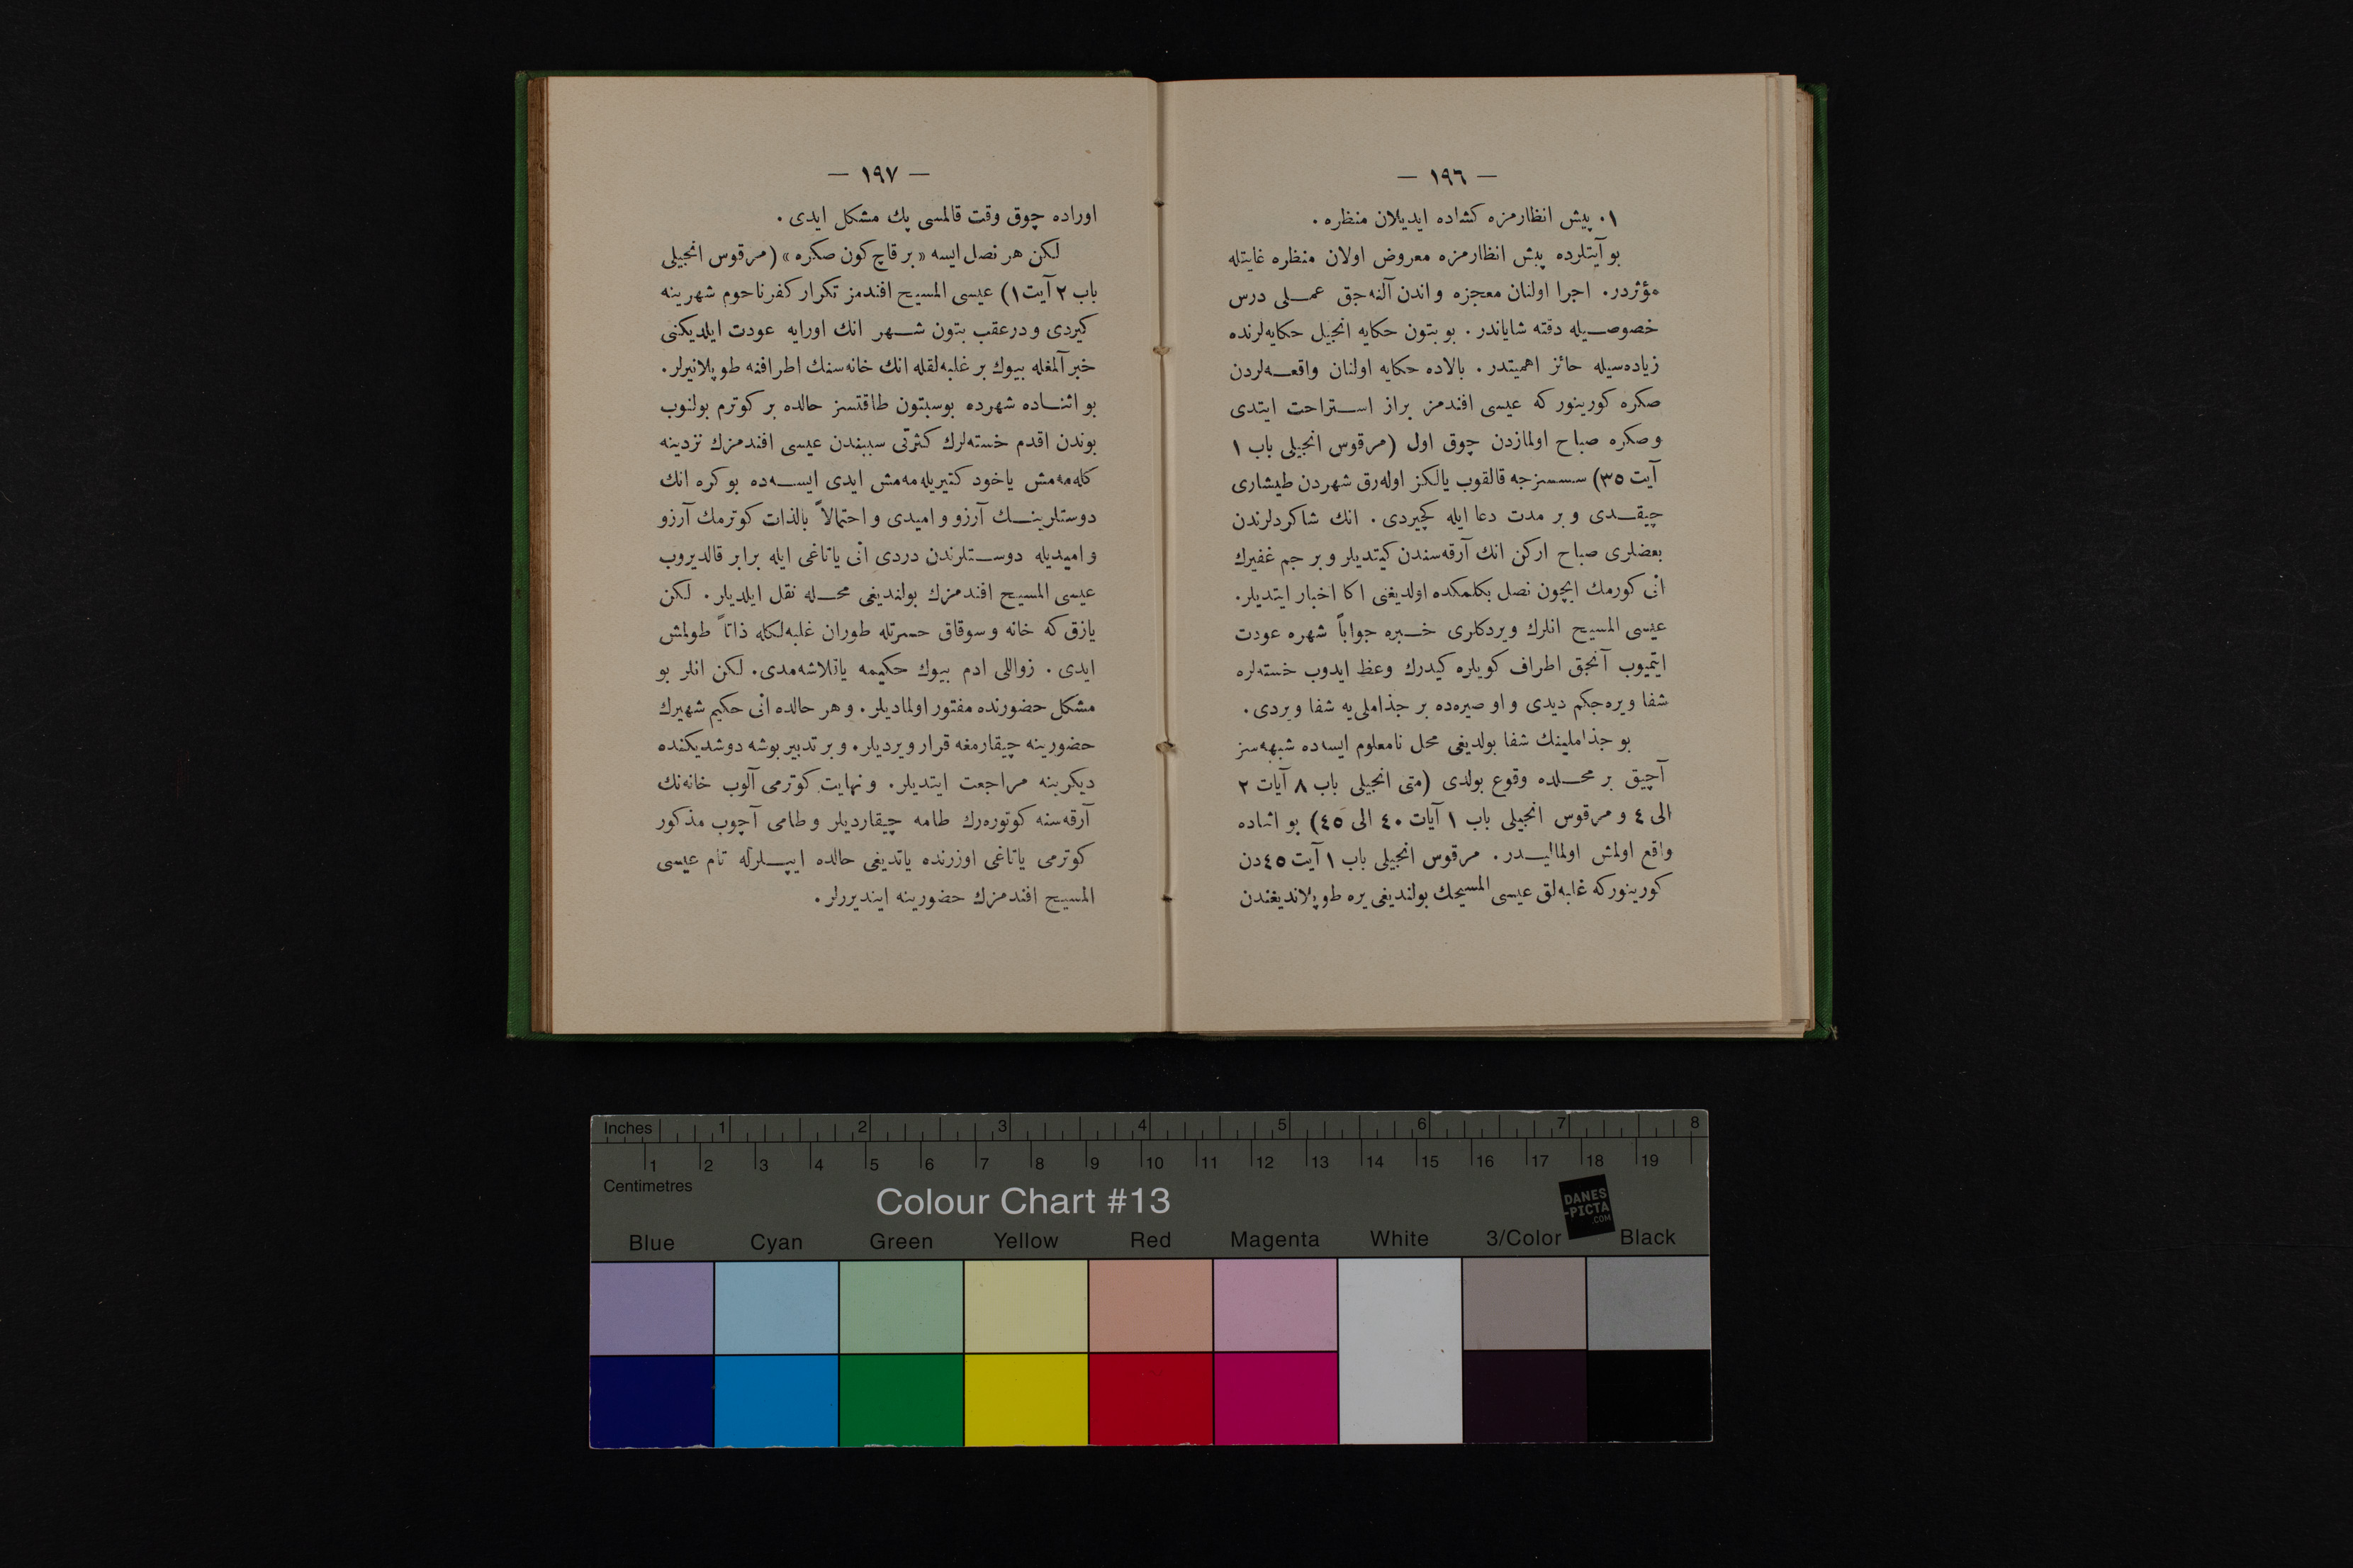 — ١٩٦ —
١. پيش انظارمزه كشاده ايديلان منظره .
بو آيتلرده پيش انظارمزه معروض اولان منظره غايتله
مؤثردر. اجرا اولنان معجزه واندن آلنه‌جق عملى درس
خصوصيله دقته شاياندر . بو بتون حكايه انجيل حكايه‌لرنده
زياده‌سيله حائز اهميتدر . بالاده حكايه اولنان واقعه‌لردن
صكره كورينور كه عيسى افندمز براز استراحت ايتدى
وصكره صباح اولمازدن چوق اول (مرقوس انجيلى باب ١
آيت ٣٥) سسسزجه قالقوب يالكز اوله‌رق شهردن طيشارى
چيقدى و بر مدت دعا ايله كچيردى . انك شاكردلرندن
بعضلرى صباح اركن انك آرقه‌سندن كيتديلر و بر جم غفيرك
انى كورمك ايچون نصل بكلمكده اولديغنى اكا اخبار ايتديلر.
عيسى المسيح انلرك ويردكلرى خبره جواباً شهره عودت
ايتميوب آنجق اطراف كويلره كيدرك وعظ ايدوب خسته‌لره
شفا ويره‌جكم ديدى و او صيره‌ده بر جذاملى‌يه شفا ويردى .
بو جذاملينك شفا بولديغى محل نامعلوم ايسه‌ده شبهه‌سز
آچيق بر محلده وقوع بولدى (متى انجيلى باب ٨ آيات ٢
الى ٤ و مرقوس انجيلى باب ١ آيات ٤٠ الى ٤٥) بو اثناده
واقع اولمش اولماليدر. مرقوس انجيلى باب ١ آيت ٤٥دن
كورينوركه غلبه‌لق عيسى المسيحك بولنديغى يره طوپلانديغندن
— ١٩٧ —
اوراده چوق وقت قالمسى پك مشكل ايدى .
لكن هر نصل ايسه «بر قاچ كون صكره» (مرقوس انجيلى
باب ٢ آيت ١) عيسى المسيح افندمز تكرار كفرناحوم شهرينه
كيردى ودرعقب بتون شهر انك اورايه عودت ايلديكنى
خبر آلمغله بيوك بر غلبه‌لقله انك خانه‌سنك اطرافنه طوپلانيرلر.
بو اثناده شهرده بوسبتون طاقتسز حالده بر كوترم بولنوب
بوندن اقدم خسته‌لرك كثرتى سببندن عيسى افندمزك نزدينه
كله‌مه‌مش ياخود كتيريله‌مه‌مش ايدى ايسه‌ده بو كره انك
دوستلرينك آرزو و اميدى و احتمالاً بالذات كوترمك آرزو
و اميديله دوستلرندن دردى انى ياتاغى ايله برابر قالديروب
عيسى المسيح افندمزك بولنديغى محله نقل ايلديلر. لكن
يازق كه خانه و سوقاق حسرتله طوران غلبه‌لكله ذاتاً طولمش
ايدى . زواللى ادم بيوك حكيمه ياقلاشه‌مدى. لكن انلر بو
مشكل حضورنده مفتور اولماديلر. و هر حالده انى حكيم شهيرك
حضورينه چيقارمغه قرار ويرديلر. و بر تدبير بوشه دوشديكنده
ديكرينه مراجعت ايتديلر. و نهايت كوترمى آلوب خانه‌نك
آرقه‌سنه كوتوره‌رك طامه چيقارديلر و طامى آچوب مذكور
كوترمى ياتاغى اوزرنده ياتديغى حالده ايپلرله تام عيسى
المسيح افندمزك حضورينه اينديررلر .
Inches 1 2 3 4 5 6 7 8
1 2 3 4 5 6 7 8 9 10 11 12 13 14 15 16 17 18 19
Centimetres
Colour Chart #13
DANES
-PICTA
.COM
Blue Cyan Green Yellow Red Magenta White 3/Color Black